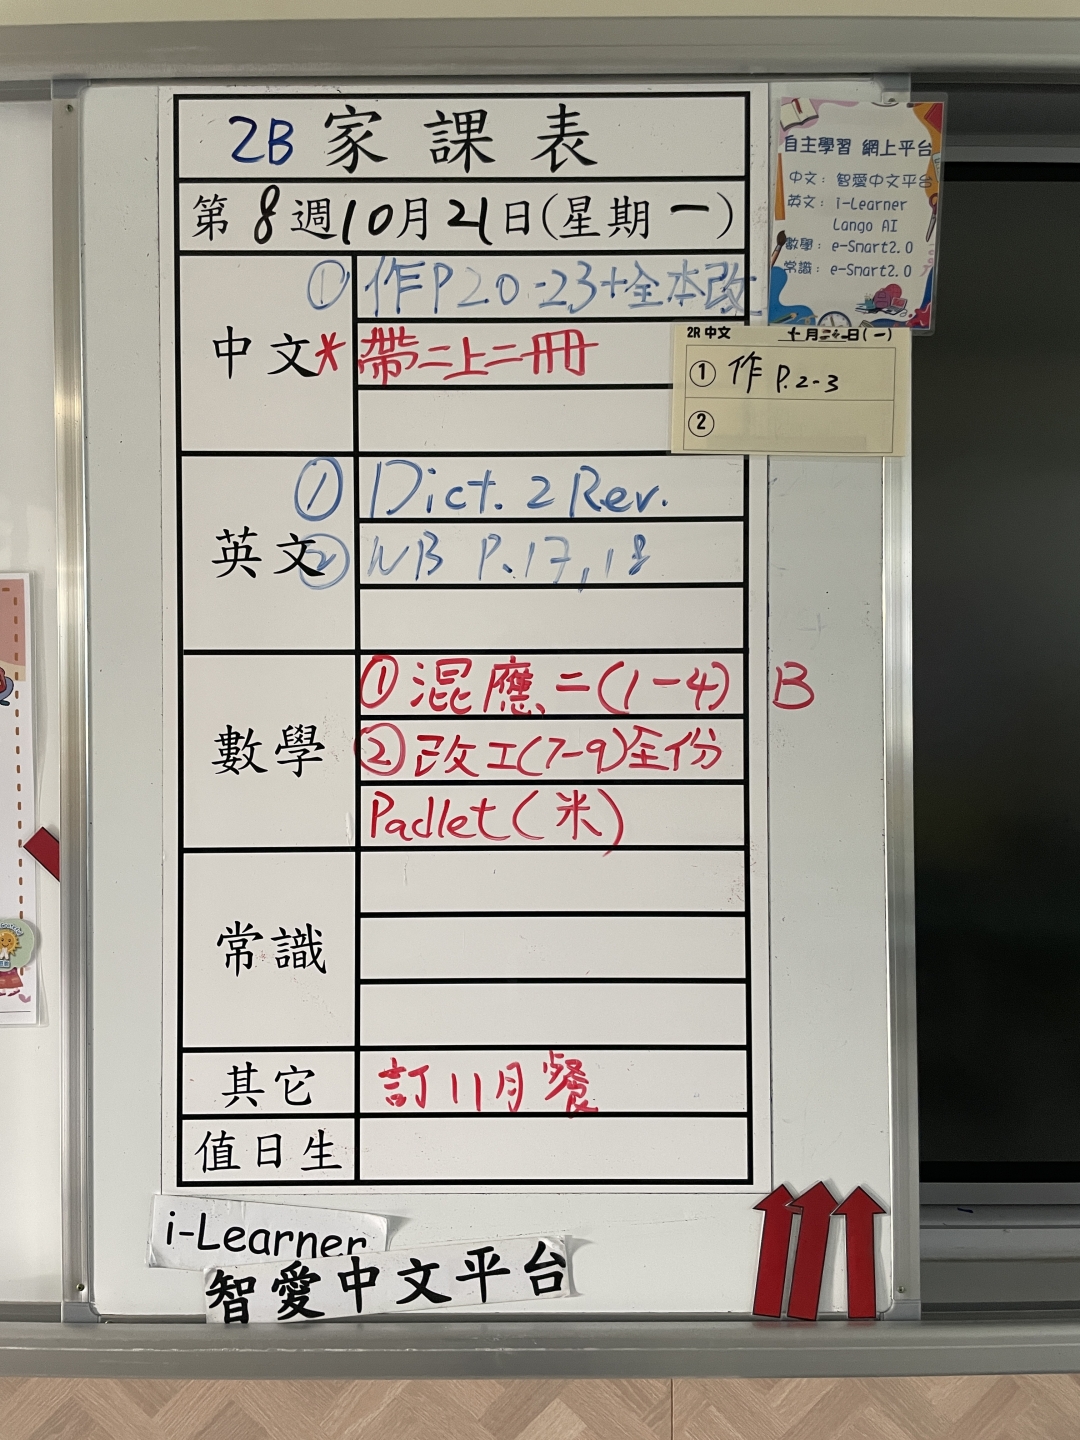 2B 家課表
第8週10月21日(星期一)
中文
① 作P20-23+全本改
* 帶二上二冊
英文
① Dict. 2 Rev.
② WB P.17,18
數學
① 混應二(1-4) B
② 改工(7-9)全份
Padlet(米)
常識
其它
訂11月餐
值日生
自主學習 網上平台
中文：智愛中文平台
英文：i-Learner
Lango AI
數學：e-Smart2.0
常識：e-Smart2.0
2R 中文 十月二十一日(一)
① 作 P.2-3
②
i-Learner
智愛中文平台